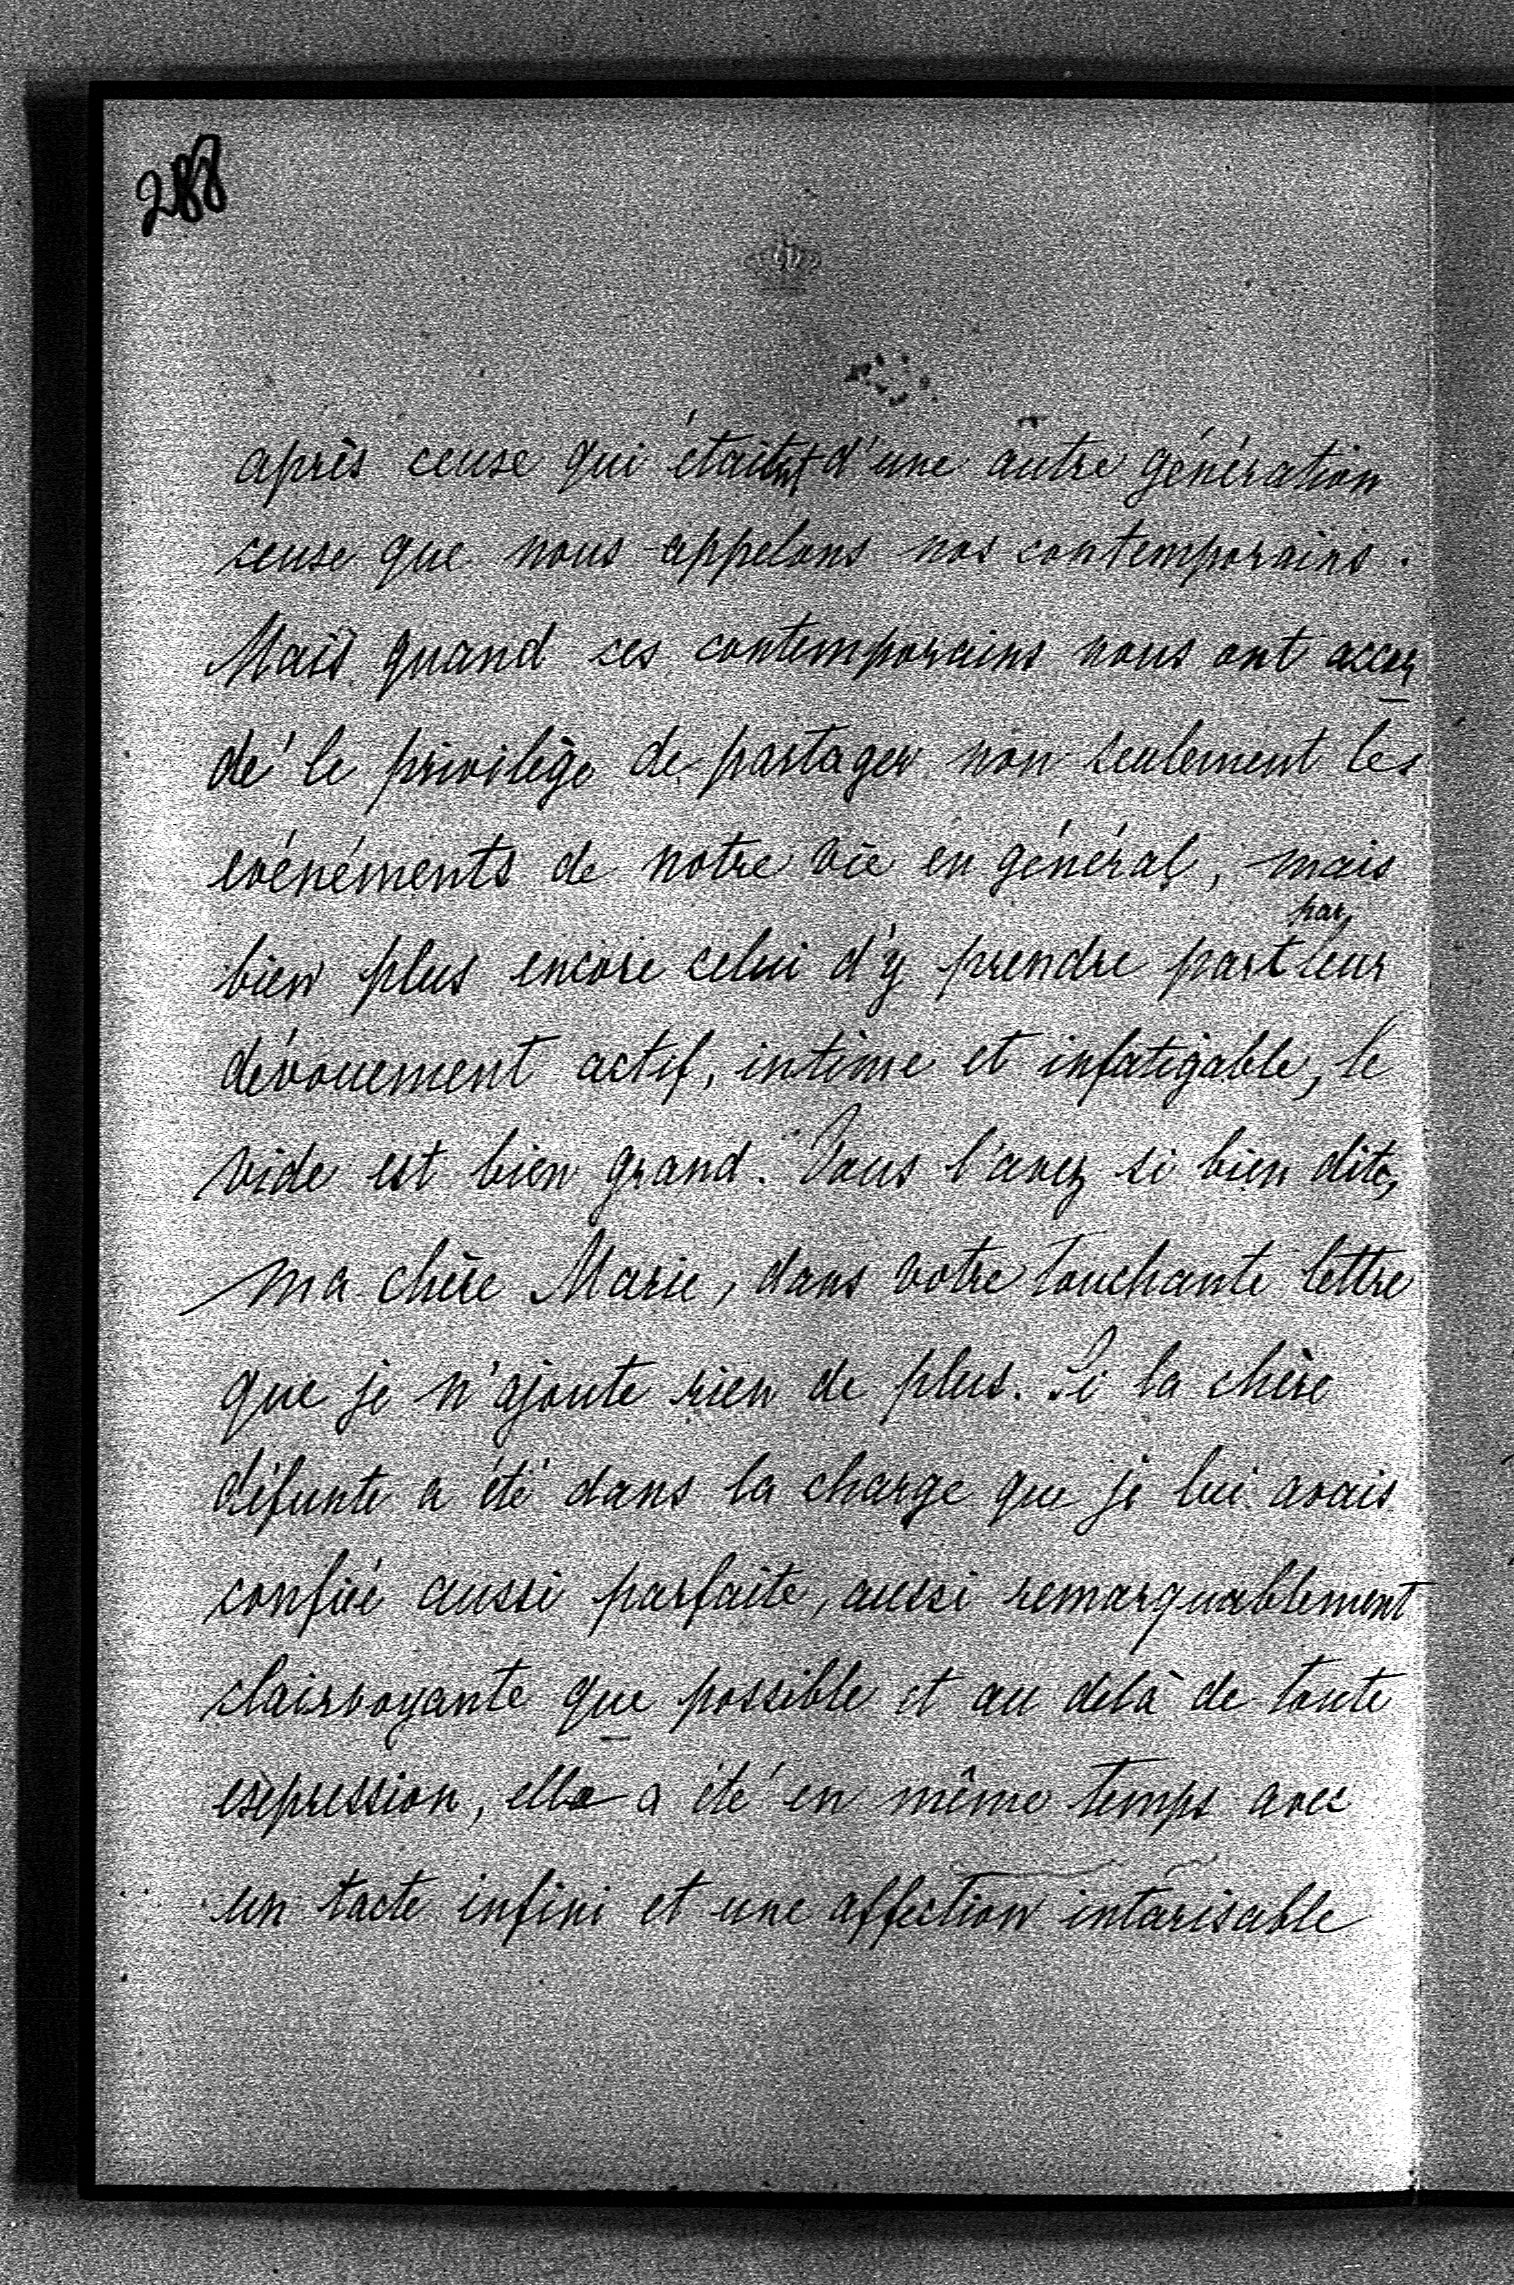 288
après ceux qui étaient d'une autre génération
ceux que nous appelons nos contemporains.
Mais quand ces contemporains nous ont accor
dé le privilège de partager non seulement les
événéments de notre vie en général, mais
par
bien plus encore celui d'y prendre part leur
dévouement actif, intime et infatigable, le
vide est bien grand. Vous l'avez si bien dite,
ma chère Marie, dans votre touchante lettre
que je n'ajoute rien de plus. Si la chère
défunte a été dans la charge que je lui avais
confiée aussi parfaite, aussi remarquablement
clairvoyante que possible et au delà de toute
expression, elle a été en même temps avec
un tacte infini et une affection intarisable